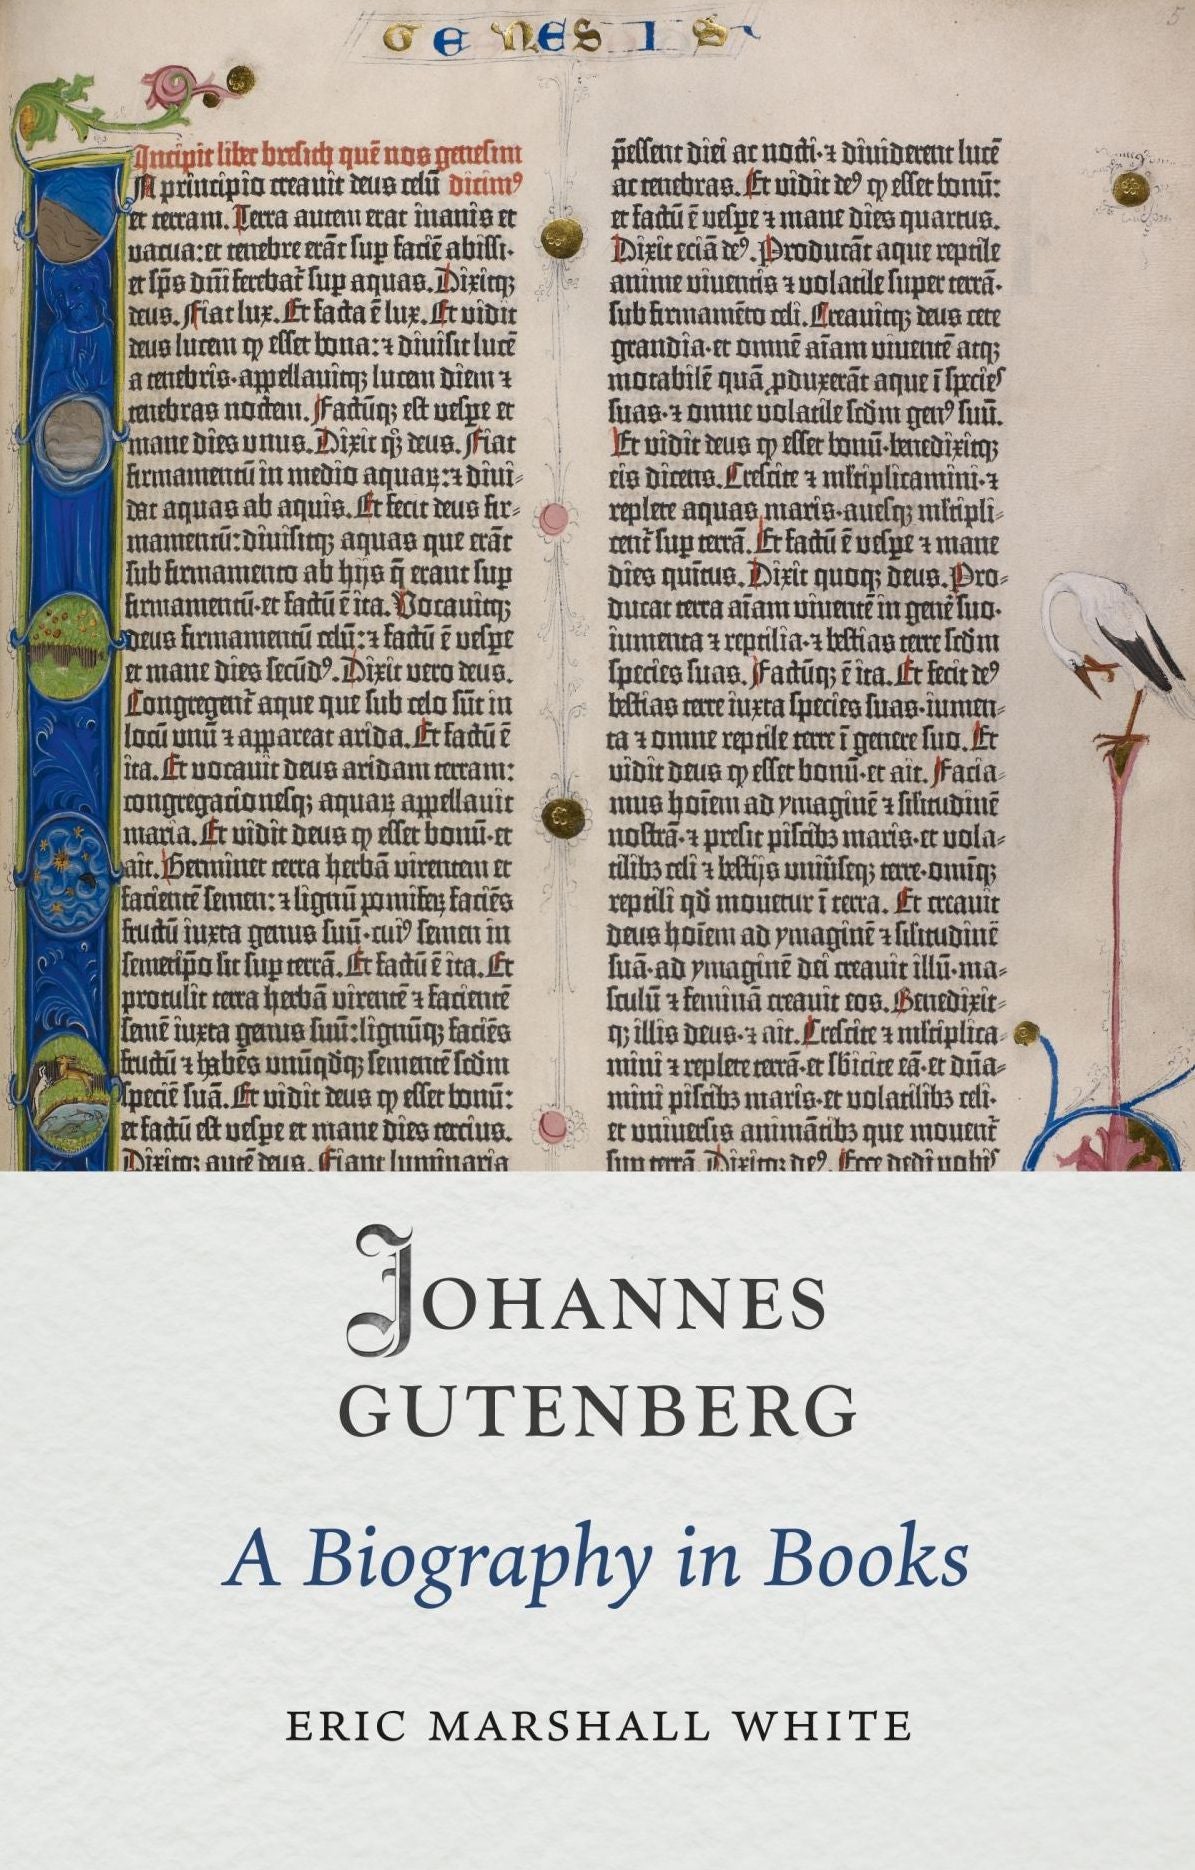 GENESIS
5
Incipit liber bresich quē nos genesim
N principio creauit deus celū dicimꝰ
et terram. Terra autem erat inanis et
vacua: et tenebre erāt sup faciē abissi·
et sp̄s dn̄i ferebat᷑ sup aquas. Dixitqꝫ
deus. Fiat lux. Et facta ē lux. Et vidit
deus lucem ꝙ esset bona: ⁊ diuisit lucē
a tenebris·appellauitqꝫ lucem diem ⁊
tenebras noctem. Factūqꝫ est vesꝑe et
mane dies vnus. Dixit qꝫ deus. Fiat
firmamentū in medio aquaꝝ: ⁊ diui-
dat aquas ab aquis. Et fecit deus fir-
mamentū: diuisitqꝫ aquas que erāt
sub firmamento ab hijs q̄ erant sup
firmamentū·et factū ē ita. Vocauitqꝫ
deus firmamentū celū: ⁊ factū ē vesꝑe
et mane dies secūdꝰ. Dixit vero deus.
Congregent᷑ aque que sub celo sūt in
locū vnū ⁊ appareat arida. Et factū ē
ita. Et vocauit deus aridam terram:
congregacionesqꝫ aquaꝝ appellauit
maria. Et vidit deus ꝙ esset bonū·et
ait. Germinet terra herbā virentem et
facientē semen: ⁊ lignū pomiferꝝ faciēs
fructū iuxta genus suū·cuiꝰ semen in
semetip̄o sit sup terrā. Et factū ē ita. Et
protulit terra herbā virentē ⁊ facientē
semē iuxta genus suū: lignūqꝫ faciēs
fructū ⁊ habēs vnūqdqꝫ sementē scdm
speciē suā. Et vidit deus ꝙ esset bonū:
et factū est vesꝑe et mane dies tercius.
Dixitqꝫ autē deus. Fiant luminaria
p̄essent diei ac nocti·⁊ diuiderent lucē
ac tenebras. Et vidit deꝰ ꝙ esset bonū:
et factū ē vesꝑe ⁊ mane dies quartus.
Dixit eciā deꝰ. Producāt aque reptile
anime viuentis ⁊ volatile super terrā·
sub firmamēto celi. Creauitqꝫ deus cete
grandia·et omnē aīam viuentē atqꝫ
motabilē quā ꝓduxerāt aque ī species
suas·⁊ omne volatile scdm genꝰ suū.
Et vidit deus ꝙ esset bonū·benedixitqꝫ
eis dicens. Crescite ⁊ ml̄tiplicamini·⁊
replete aquas maris·auesqꝫ ml̄tipli-
cent᷑ sup terrā. Et factū ē vesꝑe ⁊ mane
dies quītus. Dixit quoqꝫ deus. Pro-
ducat terra aīam viuentē in genē suo·
iumenta ⁊ reptilia·⁊ bestias terre scdm
species suas. Factūqꝫ ē ita. Et fecit deꝰ
bestias terre iuxta species suas·iumen-
ta ⁊ omne reptile terre ī genere suo. Et
vidit deus ꝙ esset bonū·et ait. Facia-
mus hoīem ad ymaginē ⁊ sīlitudinē
nostrā·⁊ presit piscibꝫ maris·et vola-
tilibꝫ celi ⁊ bestijs vniūseqꝫ terre·omīqꝫ
reptili qd̄ mouetur ī terra. Et creauit
deus hoīem ad ymaginē ⁊ sīlitudinē
suā·ad ymaginē dei creauit illū·ma-
sculū ⁊ feminā creauit eos. Benedixit-
qꝫ illis deus·⁊ ait. Crescite ⁊ ml̄tiplica-
mini ⁊ replete terrā·et sbicite eā·et dn̄a-
mini piscibꝫ maris·et volatilibꝫ celi·
et vniuersis animātibꝫ que mouent᷑
sup terrā. Dixitqꝫ deꝰ. Ecce dedi vobis
JOHANNES
GUTENBERG
A Biography in Books
ERIC MARSHALL WHITE